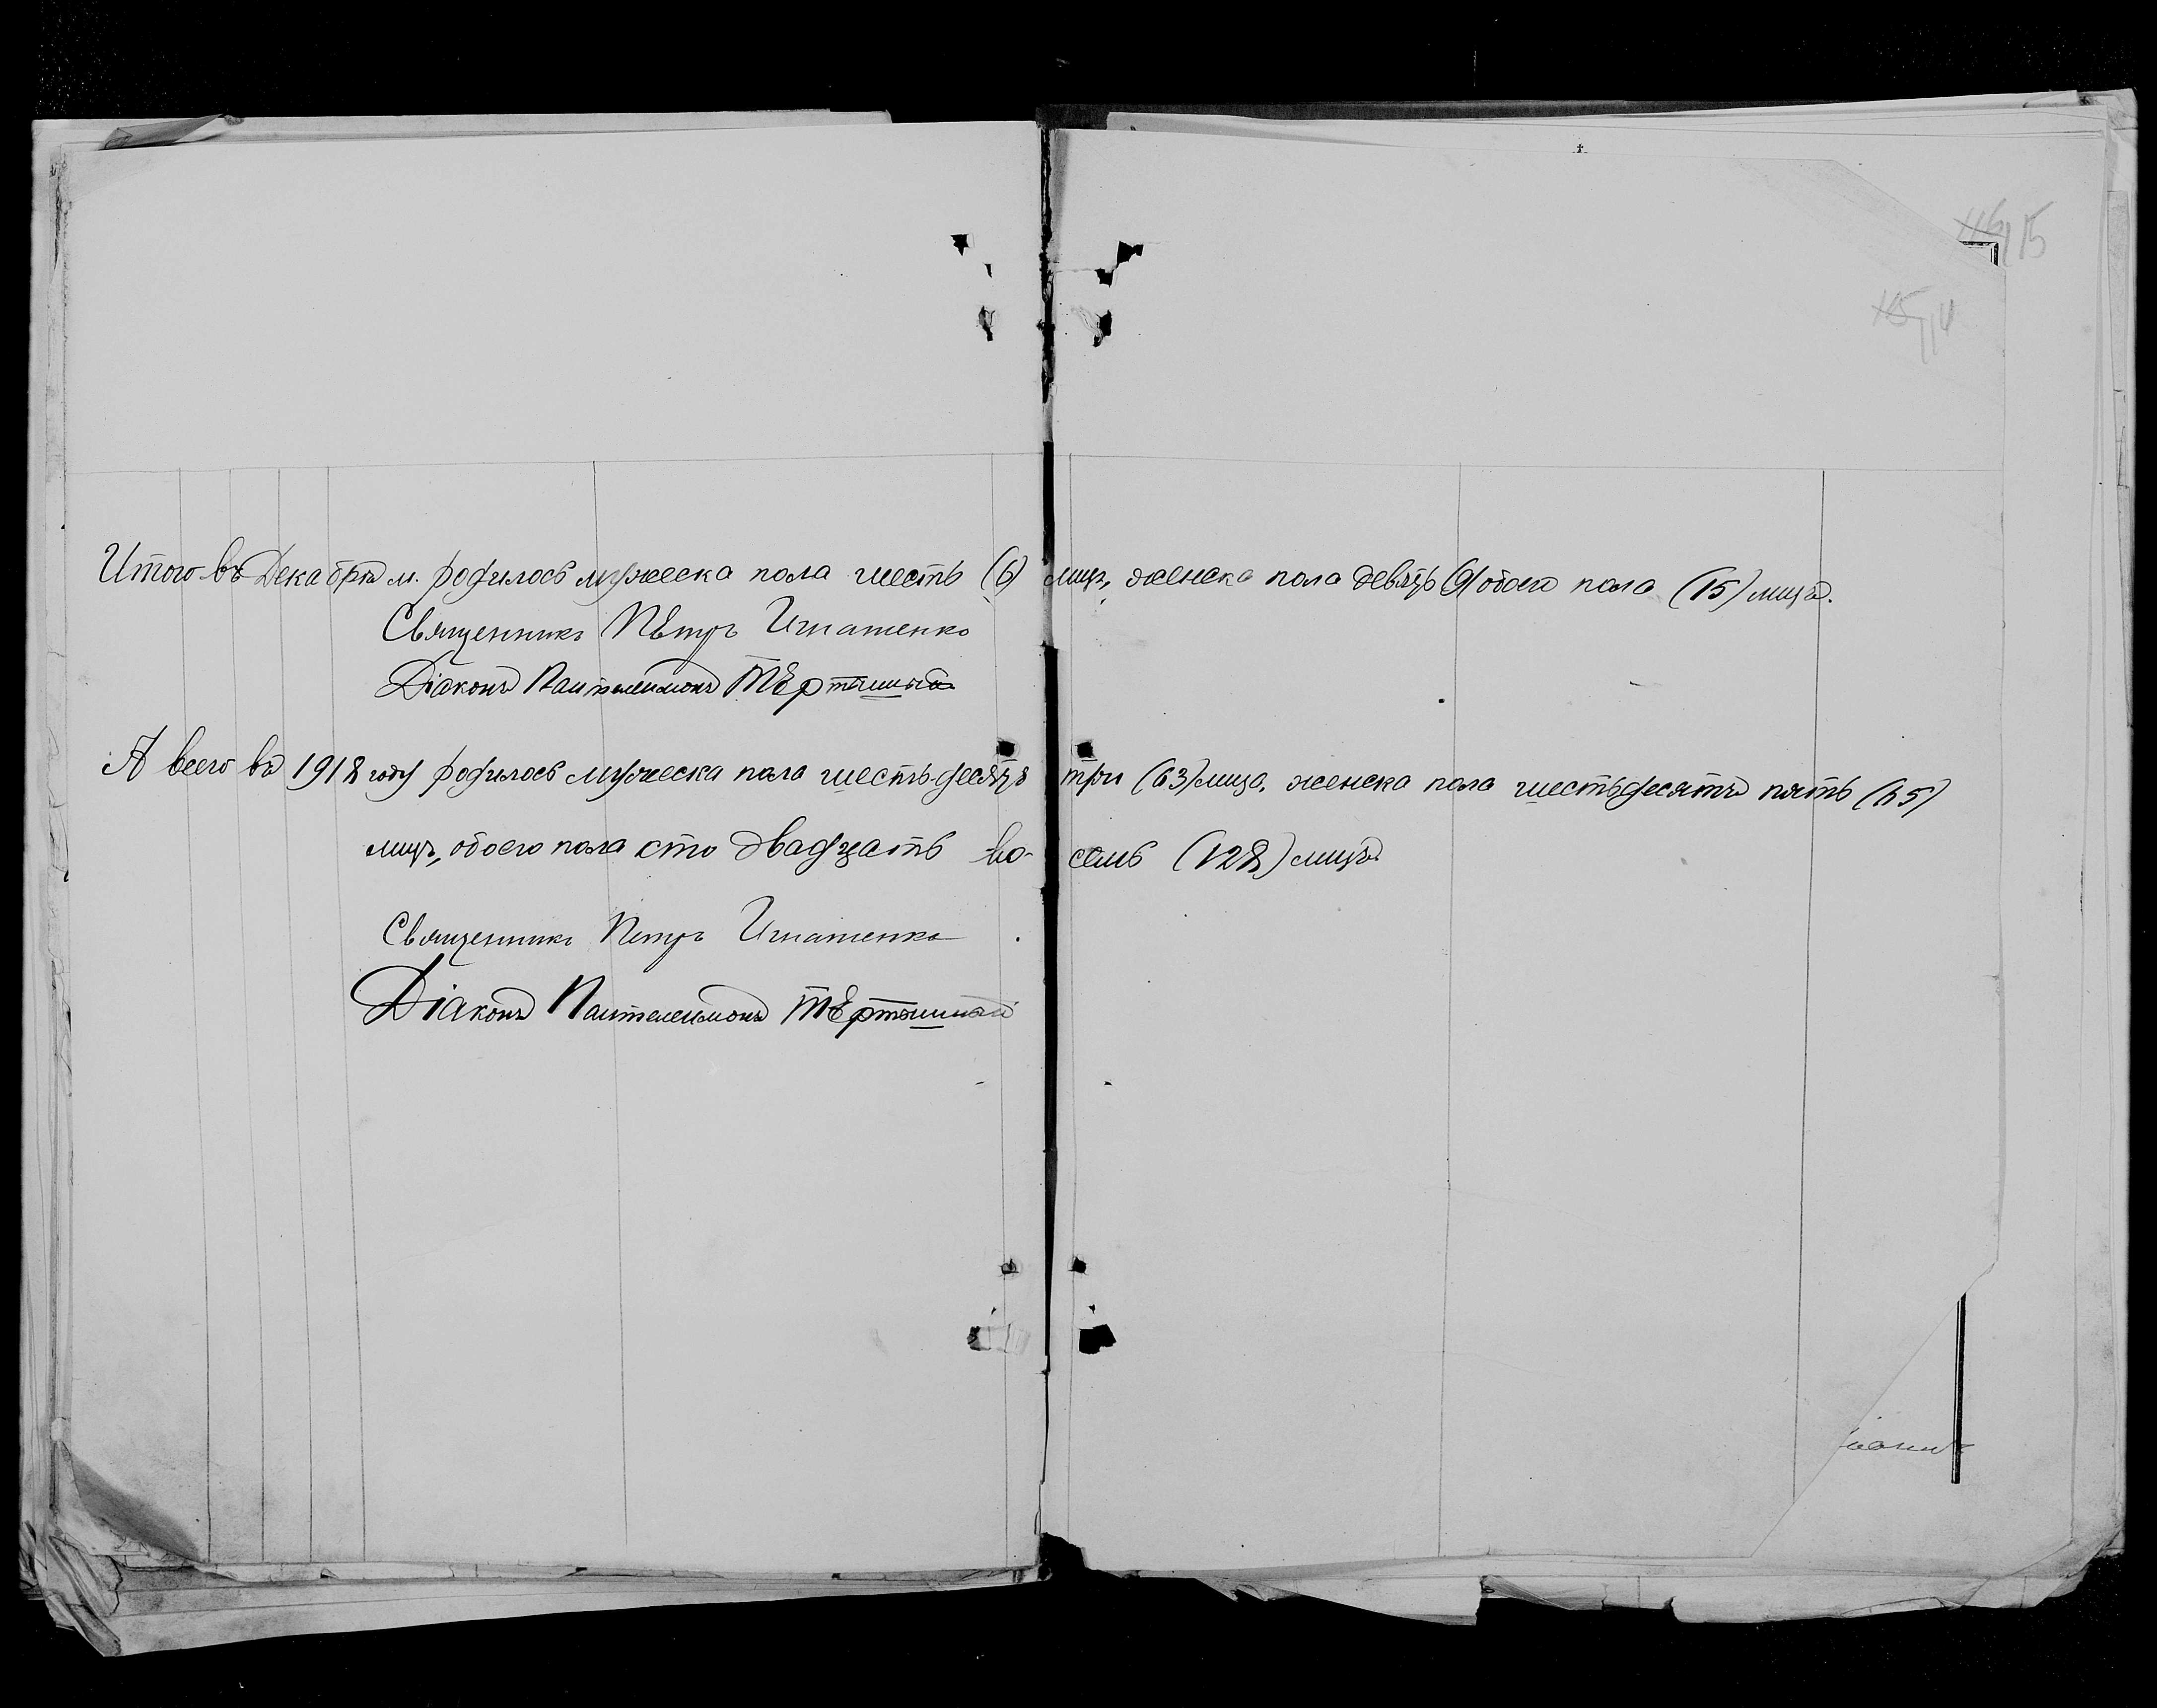 115
114
Итого въ Декабрѣ м. родилось мужеска пола шесть (6) лицъ, женска пола девять (9) обоего пола (15) лицъ.
Священникъ Пётръ Игнатенко
Діаконъ Пантелеимонъ Тертышный
А всего въ 1918 году родилось мужеска пола шесть-десятъ три (63) лица, женска пола шестьдесятъ пять (65)
лицъ, обоего пола сто двадцать во-семь (128) лицъ.
Священникъ Петръ Игнатенко
Діаконъ Пантелеимонъ Тертышный